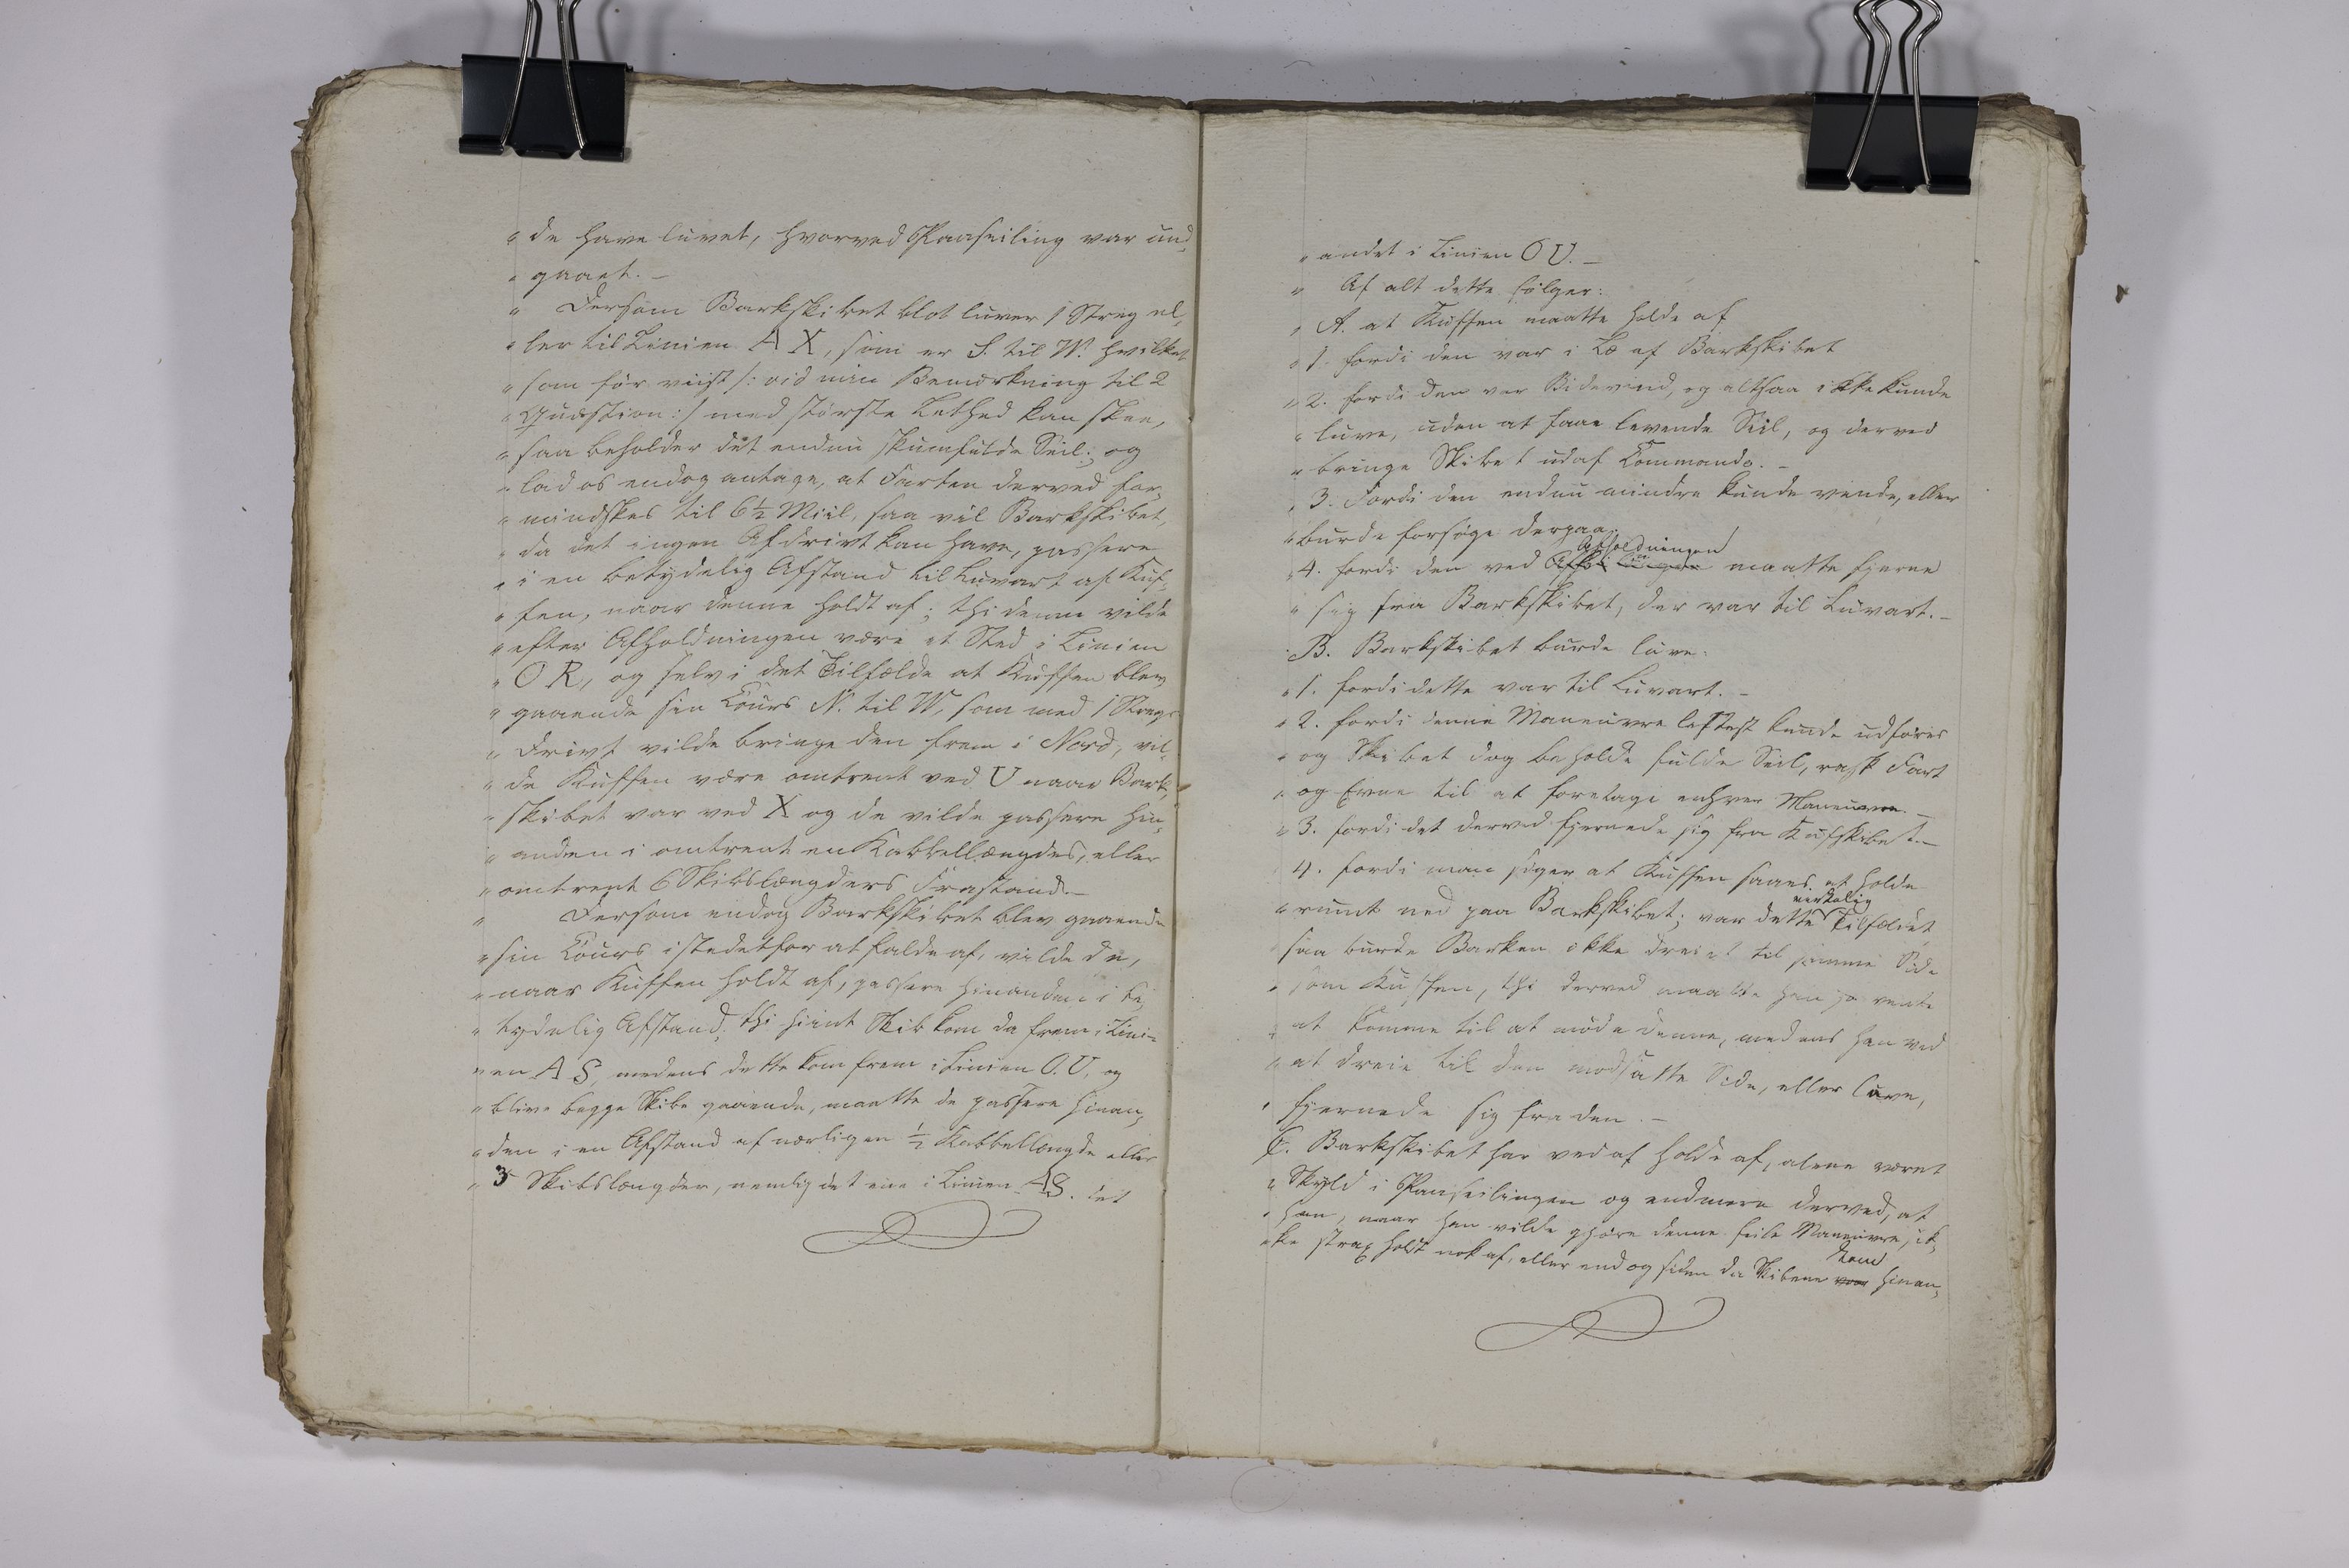 " de have luvet, hvorved Paaseiling var und,
" gaaet. —
" Dersom Barkskibet blot luver 1 Streg el,
" ler til Linien A X, som er S. til W. hvilket
" som før viist /: vid min Bemærkning til 2
" Quæstion :/ med største Lethed kan skee,
" saa beholder det endnu skumfulde Seil; og
" lad os endog antage, at Farten derved for,
" mindskes til 6½ Miil, saa vil Barkskibet,
" da det ingen Afdrivt kan have, passere
" i en betydelig Afstand til Luvart af Kuf,
" fen, naar denne holdt af; thi denne vilde
" efter Afholdningen være et Sted i Linien
" O R, og selv i det Tilfælde at Kuffen blev
" gaaende sin Cours N. til W, som med 1 Stregs
" Drivt vilde bringe den frem i Nord, vil,
" de Kuffen være omtrent ved U naar Bark,
" skibet var ved X og de vilde passere hin,
" anden i omtrent en Kabbellængdes, eller
" omtrent 6 Skibslængders Frastand. —
" Dersom endog Barkskibet blev gaaende
" sin Cours istedetfor at falde af, vilde de,
" naar Kuffen holdt af, passere hinanden i be,
" tydelig Afstand; thi hiint Skib kom da frem i Lini-
" en A S, medens dette kom frem i Linien O. U, og
" blive begge Skibe gaaende, maatte de passere hinan,
" den i en Afstand af nærligen ½ Kabbellængde eller
" 3 Skibslængder, nemlig det ene i Linien AS. det
" andet i Linien O U. —
" Af alt dette følger:
" A. at Kuffen maatte holde af
" 1. fordi den var i Læ af Barkskibet
" 2. fordi den var Bidevind, og altsaa ikke kunde
" luve, uden at faae levende Seil, og derved
" bringe Skibet udaf Commando. —
" 3. Fordi den endnu mindre kunde vende, eller
" burde forsøge derpaa.
Afholdningen
" 4. fordi den ved maatte fjerne
" sig fra Barkskibet, der var til Luvart. —
" B. Barkskibet burde luve.
" 1. fordi dette var til Luvart. —
" 2. fordi denne Maneuvre lettest kunde udføres
" og Skibet dog beholde fulde Seil, rask Fart
" og Evne til at foretage enhver Maneuvre. —
" 3. fordi det derved fjernede sig fra Kufskibet. —
4. fordi man siger at Kuffen saaes at holde
virkelig
" rumt ned paa Barkskibet; var dette Tilfældet
saa burde Barken ikke dreiet til samme Side
" som Kuffen, thi derved maatte han jo vente
" at komme til at møde denne, medens han ved
" at dreie til den modsatte Side, eller luve,
" fjernede sig fra den. —
C. Barkskibet har ved at holde af, alene været
" Skyld i Paaseilingen og endmere derved, at
" han, naar han vilde gjøre denne feile Maneuvre, ik,
" ke strax holdt nok af, eller endog siden da Skibene var hinan,
kom